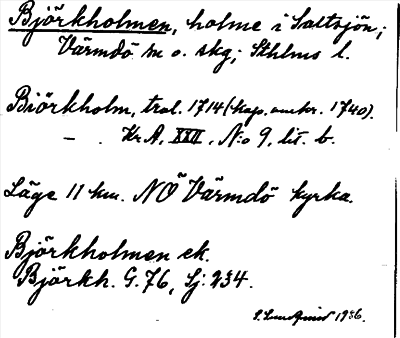 Björkholmen, holme i Saltsjön;
Värmdö sn o. skg; Sthlms l.
Biörkholm, trol. 1714 (kop. omkr. 1740).
— . Kr.A, XXII, N:o 9, lit. b.
Läge 11 km. NÖ Värmdö kyrka.
Björkholmen ek.
Björkh. G. 76, Sj: 234.
S. Lundquist 1936.